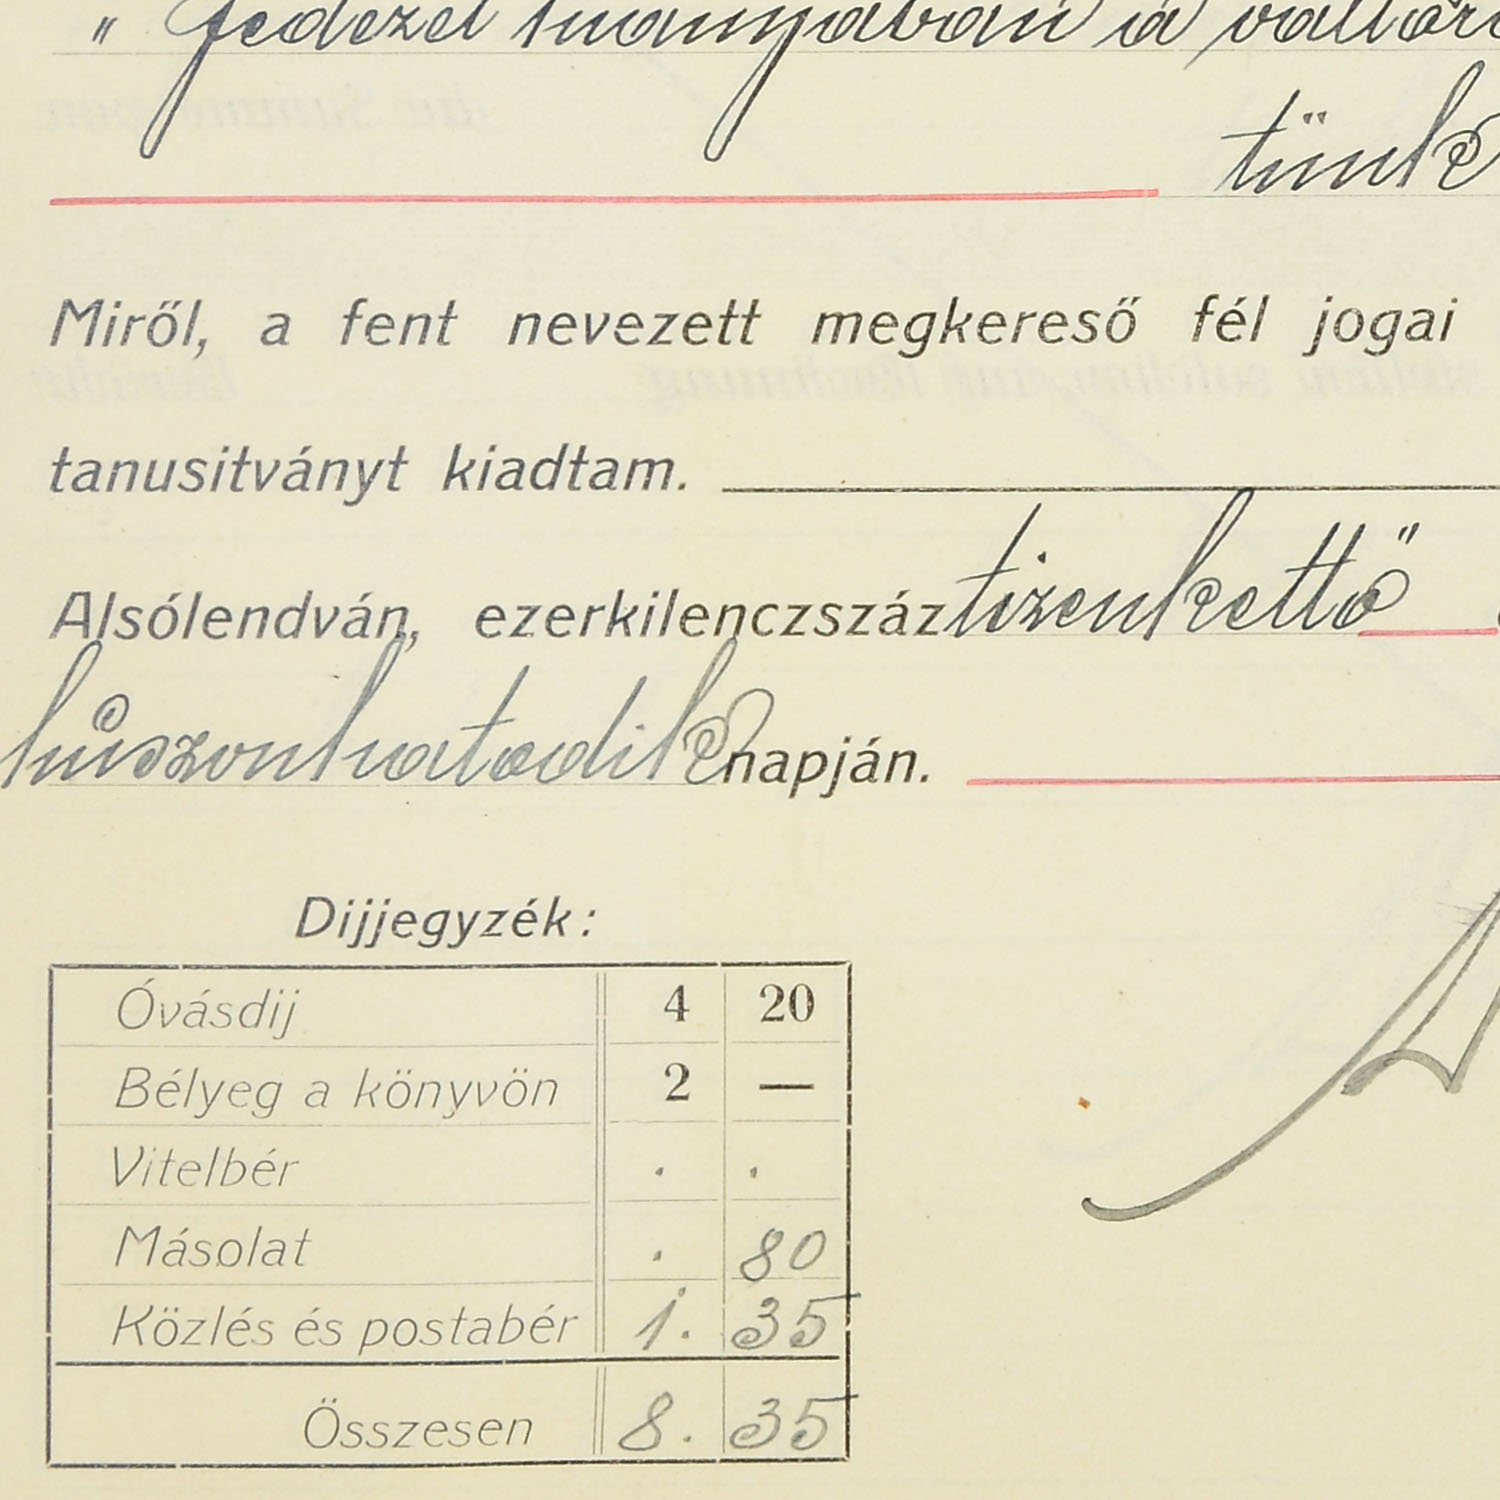 " fedezet hiányában a váltóra
tünk
Miről, a fent nevezett megkereső fél jogai
tanusitványt kiadtam.
Alsólendván, ezerkilenczszáz tizenkettő
húszonhatodik napján.
Dijjegyzék:
Óvásdij 4 20
Bélyeg a könyvön 2 —
Vitelbér . .
Másolat . 80
Közlés és postabér 1. 35
Összesen 8. 35